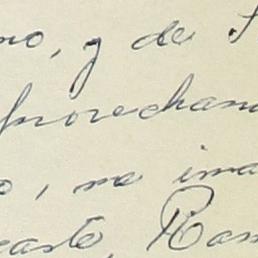 no, y de
Aprovechan
o, no ima
easto, Ram